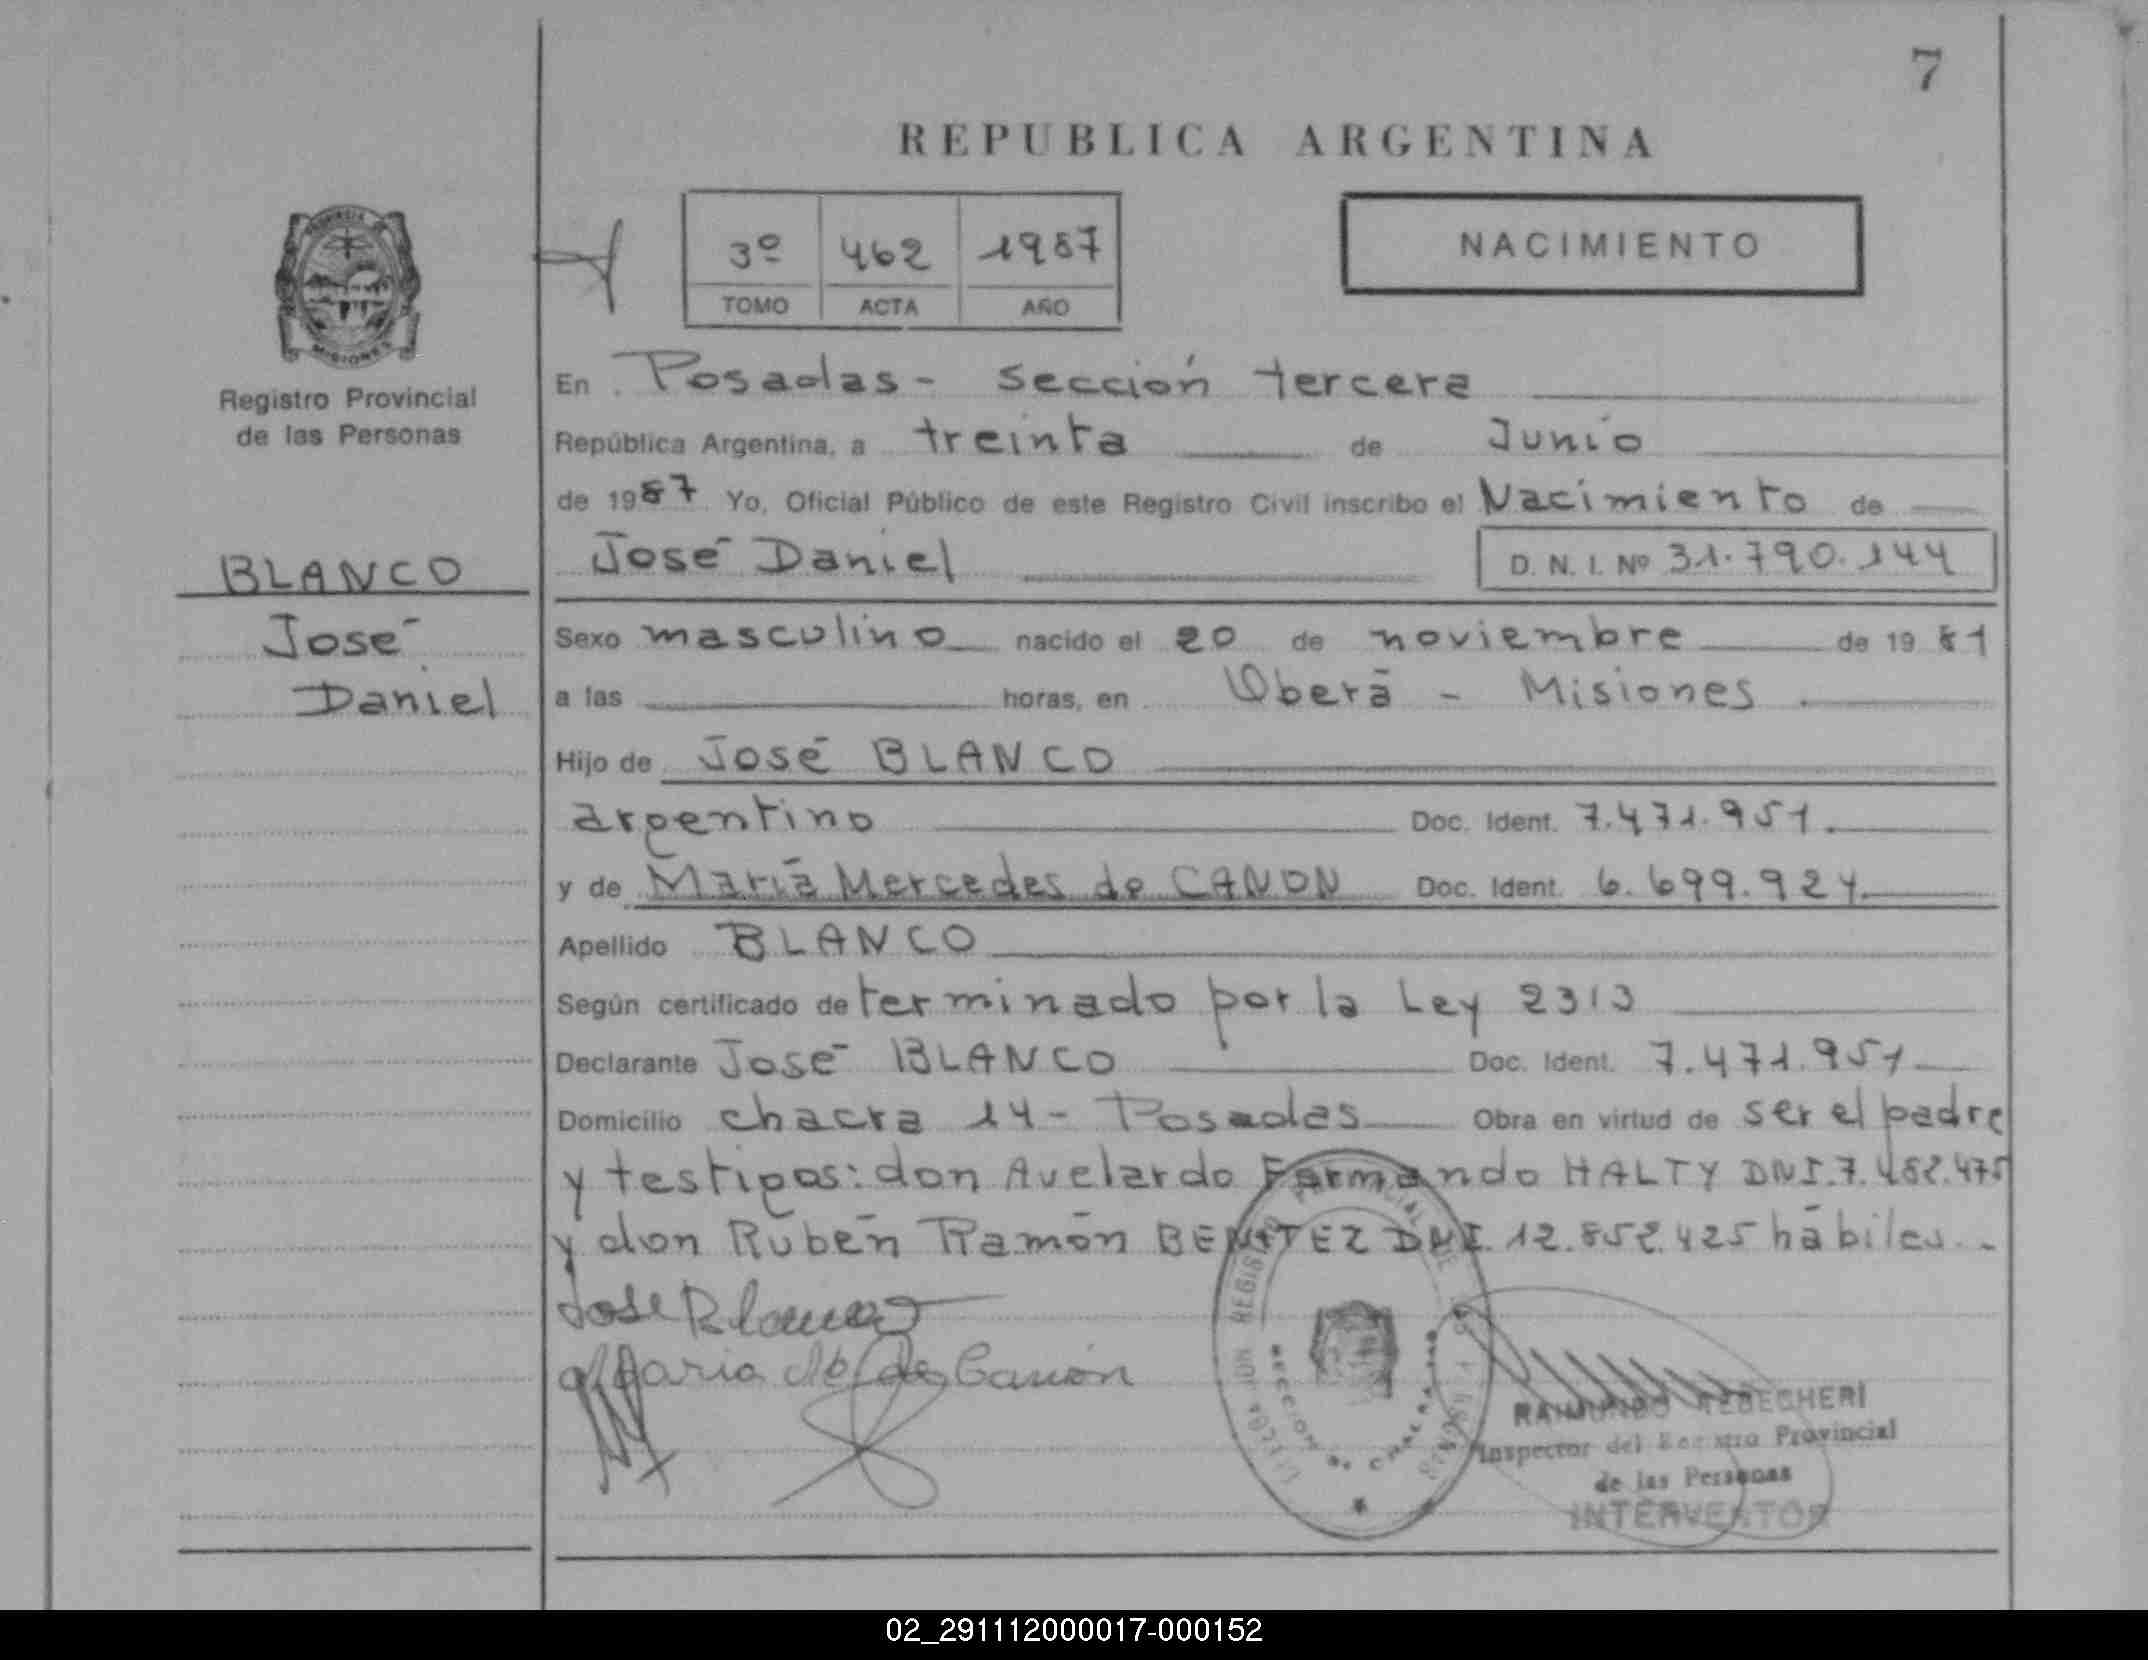 7
REPUBLICA ARGENTINA
3º 462 1987
TOMO ACTA AÑO
NACIMIENTO
PROVINCIA
MISIONES
Registro Provincial
de las Personas
BLANCO
José
Daniel
En Posadas - sección tercera
República Argentina, a treinta de Junio
de 1987 Yo, Oficial Público de este Registro Civil inscribo el Nacimiento de
José Daniel D. N. I. Nº 31.790.144
Sexo masculino nacido el 20 de noviembre de 1981
a las horas, en Oberá - Misiones
Hijo de José BLANCO
argentino Doc. Ident. 7.471.951
y de María Mercedes de CANON Doc. Ident. 6.699.924
Apellido BLANCO
Según certificado determinado por la Ley 2313
Declarante José BLANCO Doc. Ident. 7.471.951
Domicilio chacra 14 - Posadas Obra en virtud de ser el padre
y testigos: don Avelardo Fernando HALTY DNI. 7.482.475
y don Rubén Ramón BENITEZ DNI. 12.852.425 hábiles. -
Jose Blanco
Maria M. de Canón
RAIMUNDO
Inspector del Registro Provincial
de las Personas
INTERVENTOR
02_291112000017-000152